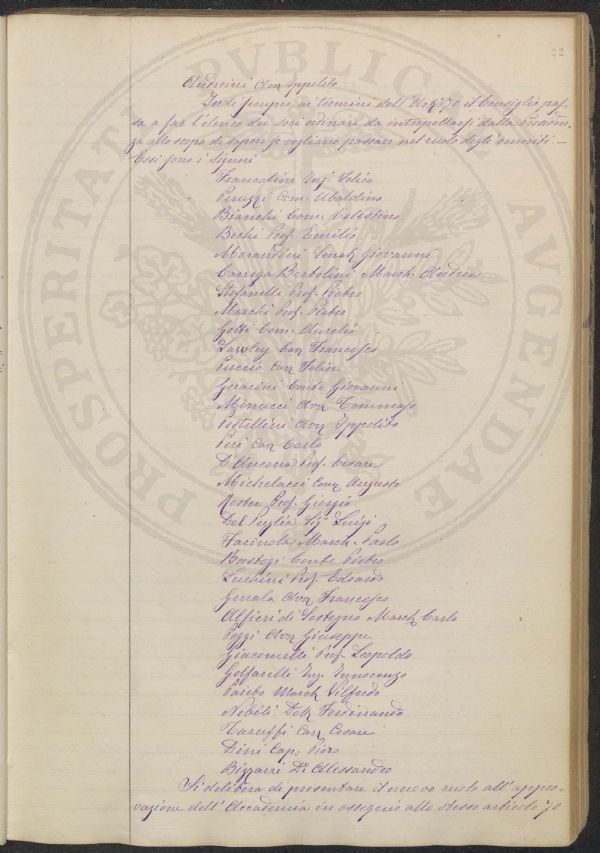 22
Andreini Avv Ippolito
Indi sempre ai termini dell'Art.° 70 il Consiglio pas-
sa a far l'elenco dei soci ordinari da interpellarsi dalla
za allo scopo di sapere se vogliano passare nel ruolo degli emeriti. —
Essi sono i Signori
Francolini Ing.r Felice
Peruzzi Com. Ubaldino
Bianchi Com. Celestino
Bechi Prof. Emilio
Morandini Giovanni
Carrega Bertolini March. Andrea
Stefanelli Prof. Pietro
Marchi Prof. Pietro
Gotti Com. Aurelio
Lawley Cav Francesco
Puccio Cav Felice
Guarini Conte Giovanni
Minucci Avv Tommaso
Pestellini Avv Ippolito
Peri Cav Carlo
D'Ancona Prof. Cesare
Michelacci Cav Augusto
Roster Prof. Giorgio
Del Puglia Sig.r Luigi
Farinola March. Paolo
Bastogi Conte Pietro
Luchini Prof. Edoardo
Genala Avv Francesco
Alfieri di Sostegno March Carlo
Poggi Avv Giuseppe
Giacomelli Prof. Leopoldo
Golfarelli Ing. Innocenzo
Pareto March Vilfredo
Nobili Dott Ferdinando
Taruffi Cav Cesare
Dini Cap: Piero
Bizzarri D.r Alessandro
Si delibera di presentare il nuovo ruolo all'appro-
vazione dell'Accademia in ossequio allo stesso articolo 70
PROSPERITATI PVBLICAE AVGENDAE